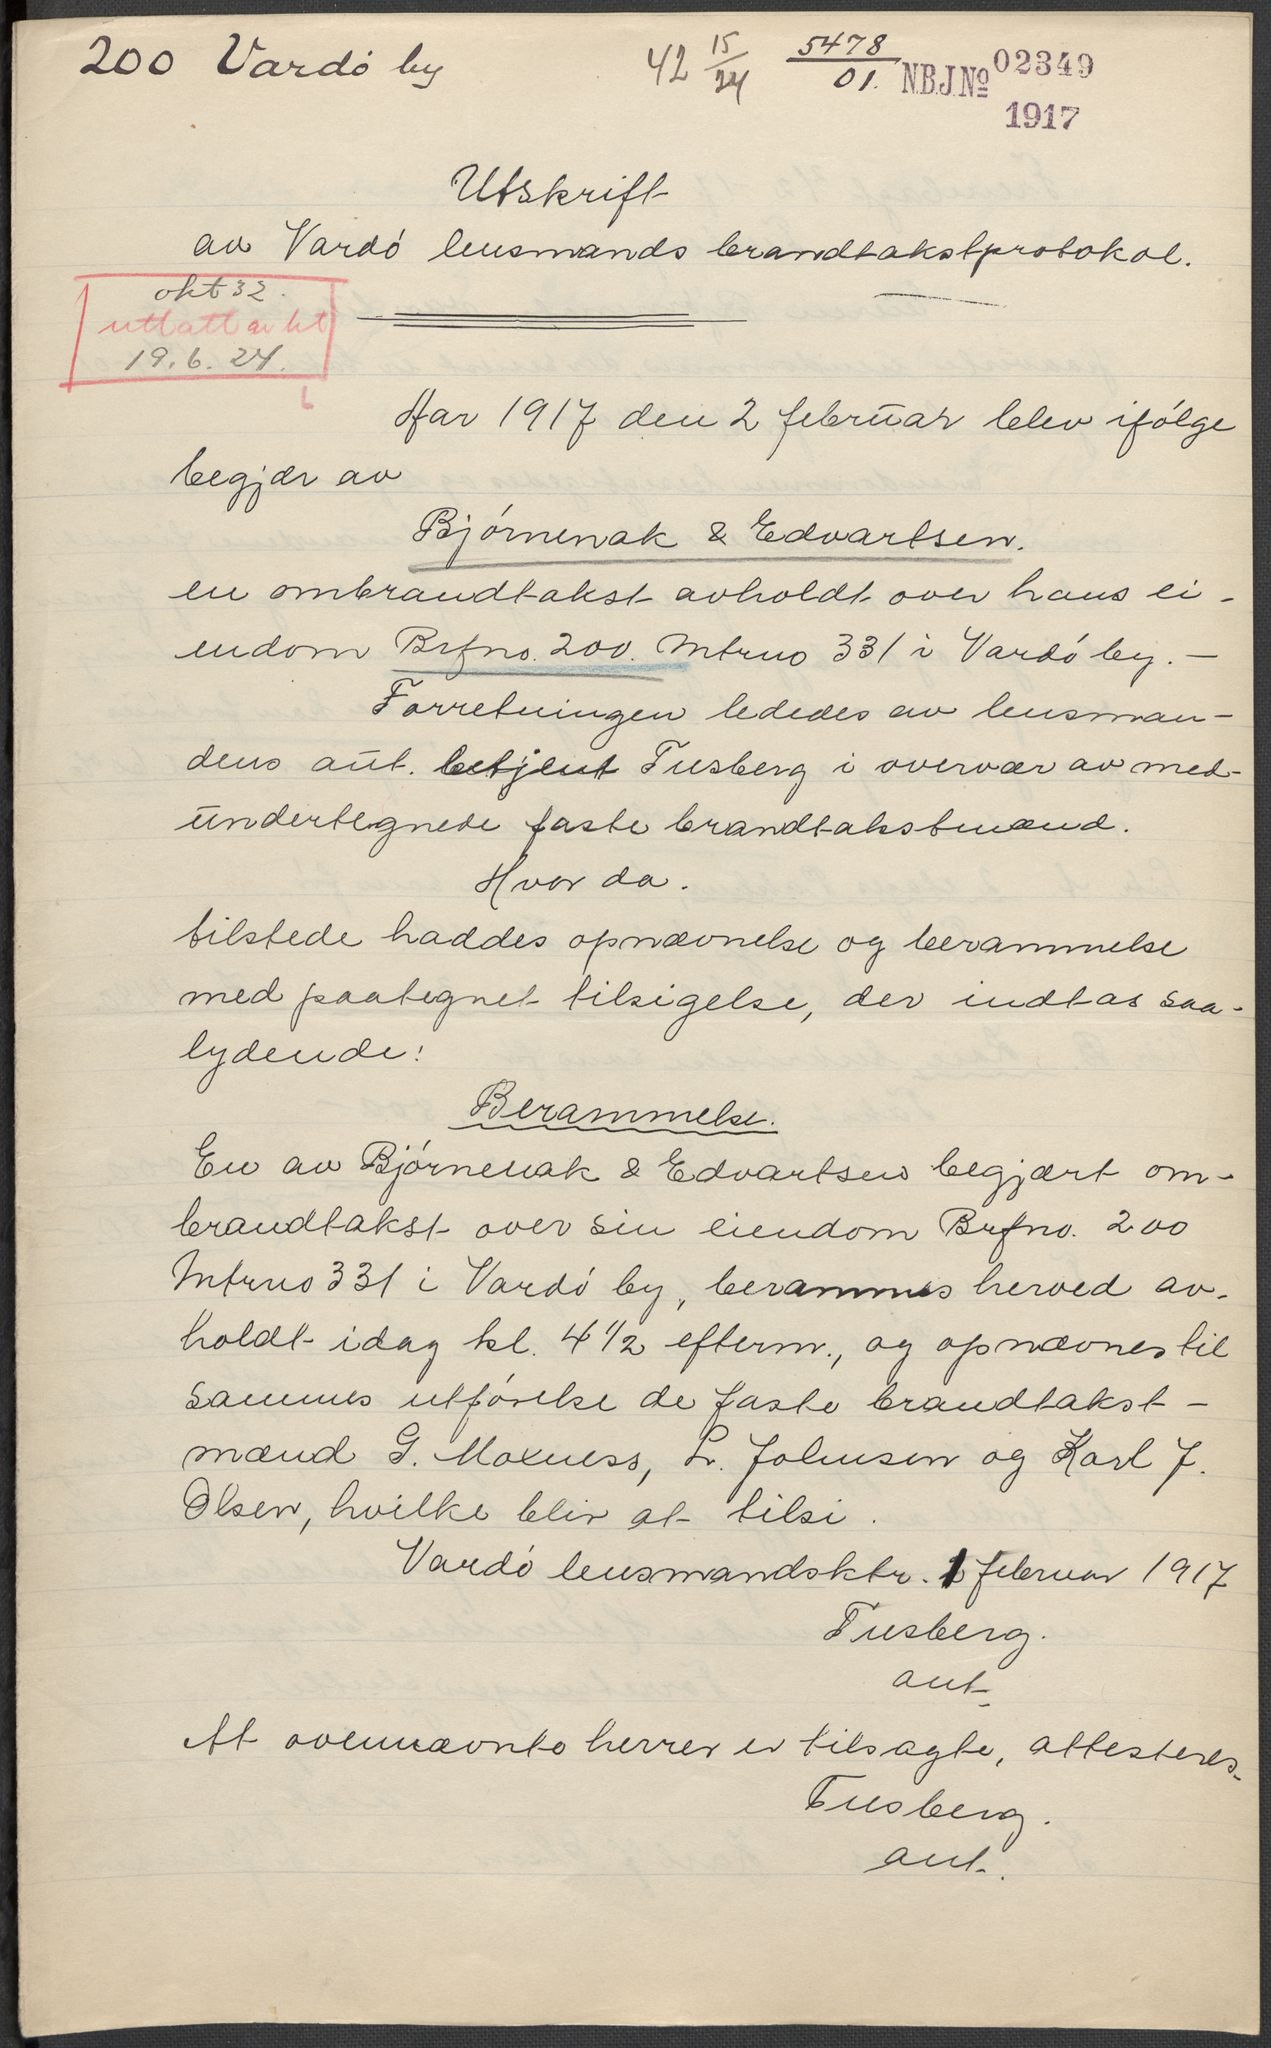 200 Vardó by
42 15/24 5478/01. N.B.J.No 02349
1917
Utskrift
av Vardó lensmands brandtakstprotokol.
okt 32.
uttatt av kt
19.6.24.
Aar 1917 den 2 februar blev ifólge
begjær av
Bjórnenak & Edvartsen.
en ombrandtakst avholdt over hans ei-
endom Brfno. 200. Mtrno 331 i Vardó by. -
Forretningen lededes av lensman-
dens aut. betjent Tusberg i overvær av med-
undertegnede faste brandtakstmænd.
Hvor da.
tilstede haddes opnævnelse og berammelse
med paategnet tilsigelse, der indtas saa-
lydende:
Berammelse.
En av Bjórnenak & Edvartsen begjært om-
brandtakst over sin eiendom Brfno. 200
Mtrno 331 i Vardó by, berammes herved av-
holdt idag kl. 4 1/2 efterm., og opnævnes til
sammes utfórelse de faste brandtakst-
mænd G. Moxness, L. Johnsen og Karl J.
Olsen, hvilke blir at tilsi.
Vardó lensmandsktr. 1 februar 1917
Tusberg.
aut.
At ovennævnte herrer er tilsagte, attesteres.
Tusberg.
aut.